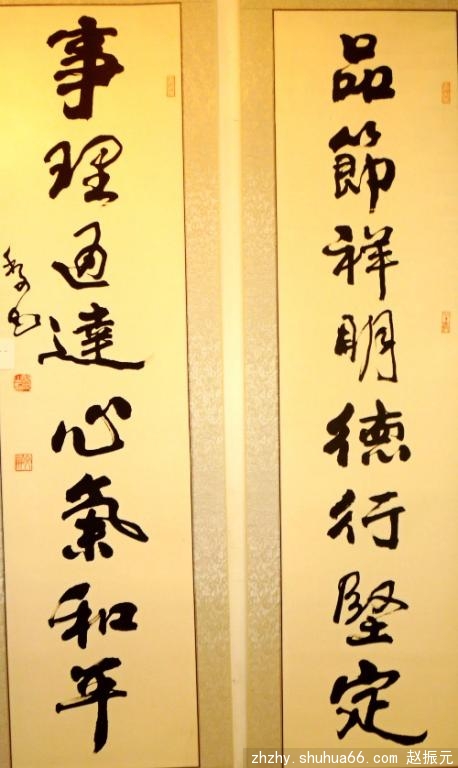 品節祥明德行堅定
事理通達心氣和平
zhzhy.shuhua66.com 赵振元